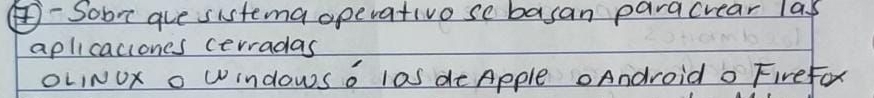 ⑦- Sobre que sistema operativo se basan para crear las
aplicaciones cerradas
O LINUX o Windows ó las de Apple o Android o FireFox